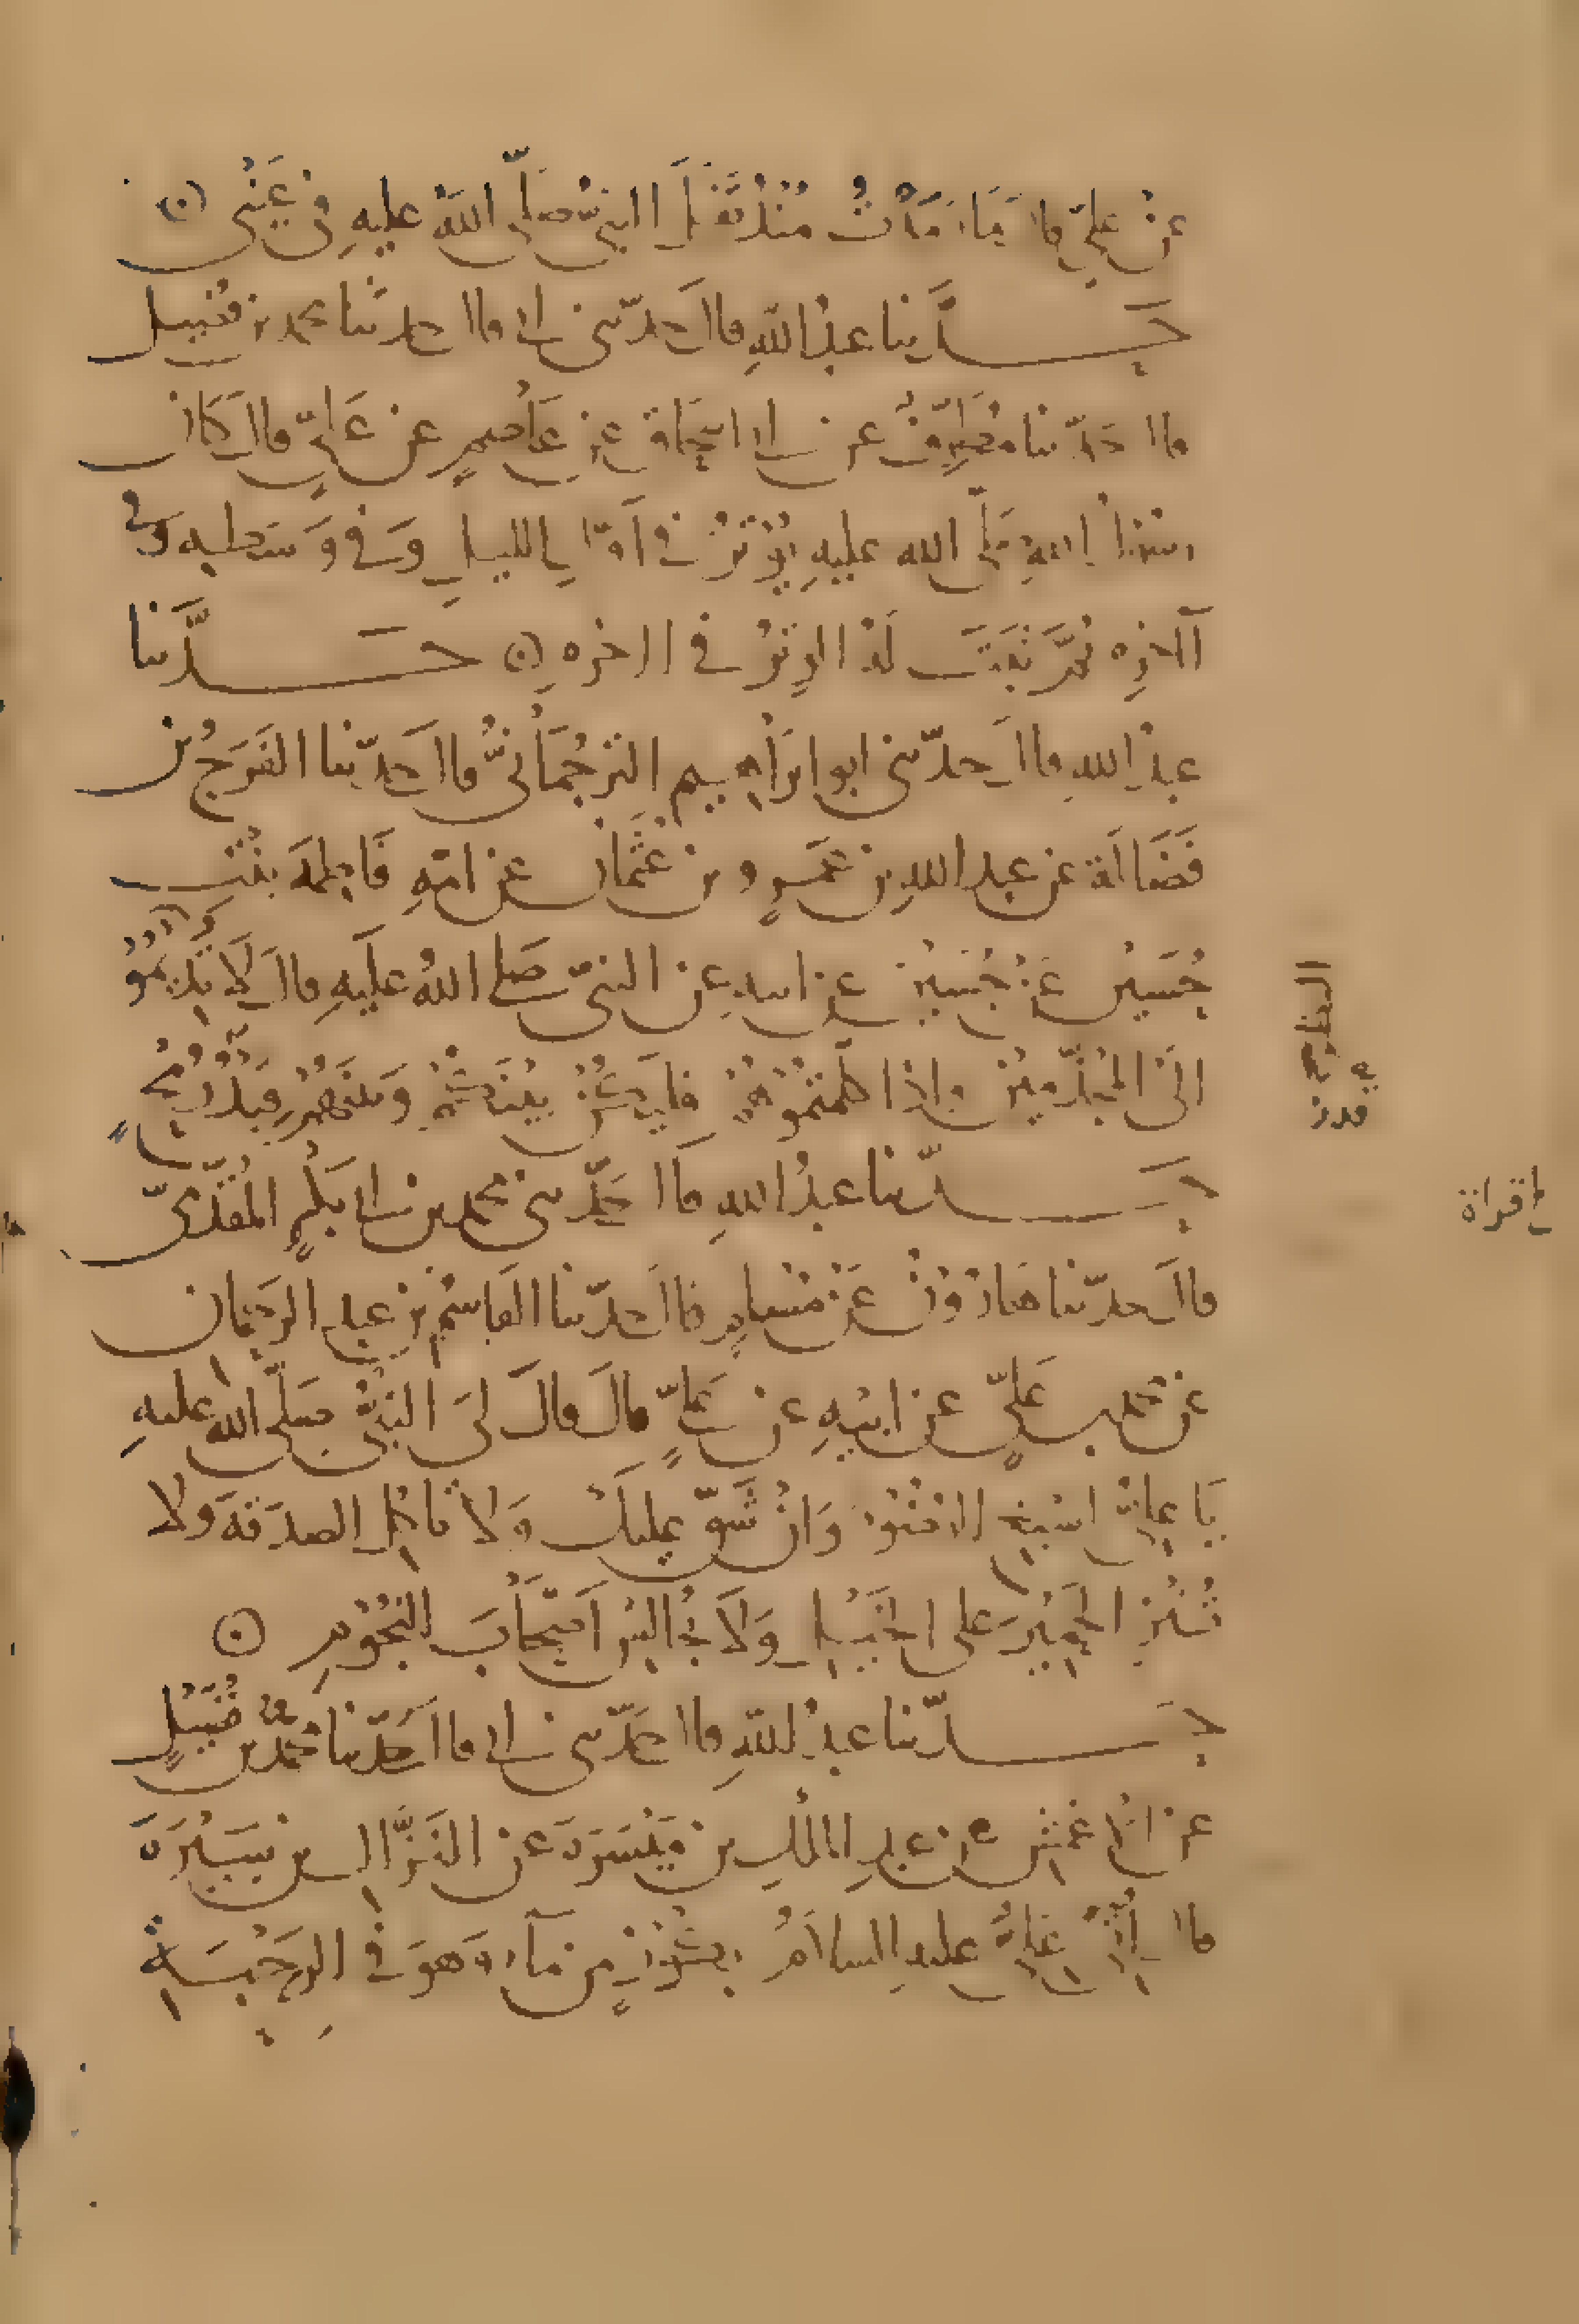 عن علي قال ما رمدت منذ تفل النبي صلى الله عليه في عيني
حدثنا عبد الله قال حدثني ابي قال حدثنا محمد بن فضيل
قال حدثنا مطرف عن ابي اسحاق عن عاصم عن علي قال كان
رسول الله صلى الله عليه يوتر في اول الليل وفي وسطه وفي
آخره ثم ثبت له الوتر في اخره حدثنا
عبد الله قال حدثني ابو ابراهيم الترجماني قال حدثنا الفرج بن
فضالة عن عبد الله بن عمرو بن عثمان عن امه فاطمة بنت
حسين عن حسين عن ابيه عن النبي صلى الله عليه قال لا تديموا
الى المجذمين واذا كلمتموهم فليكن بينكم وبينهم قيد رمح
حدثنا عبد الله قال حدثني محمد بن ابي بكر المقدمي
قال حدثنا هارون بن مسلم قال حدثنا القاسم بن عبد الرحمان
عن محمد بن علي عن ابيه عن علي قال قال لي النبي صلى الله عليه
يا علي اسبغ الوضوء وان شق عليك ولا تاكل الصدقة ولا
تنز الحمير على الخيل ولا تجالس اصحاب النجوم
حدثنا عبد الله قال حدثني ابي قال حدثنا محمد بن فضيل
عن الاعمش عن عبد الملك بن ميسرة عن النزال بن سبرة
قال اتي علي عليه السلام بكوز من ماء وهو في الرحبة
النظر